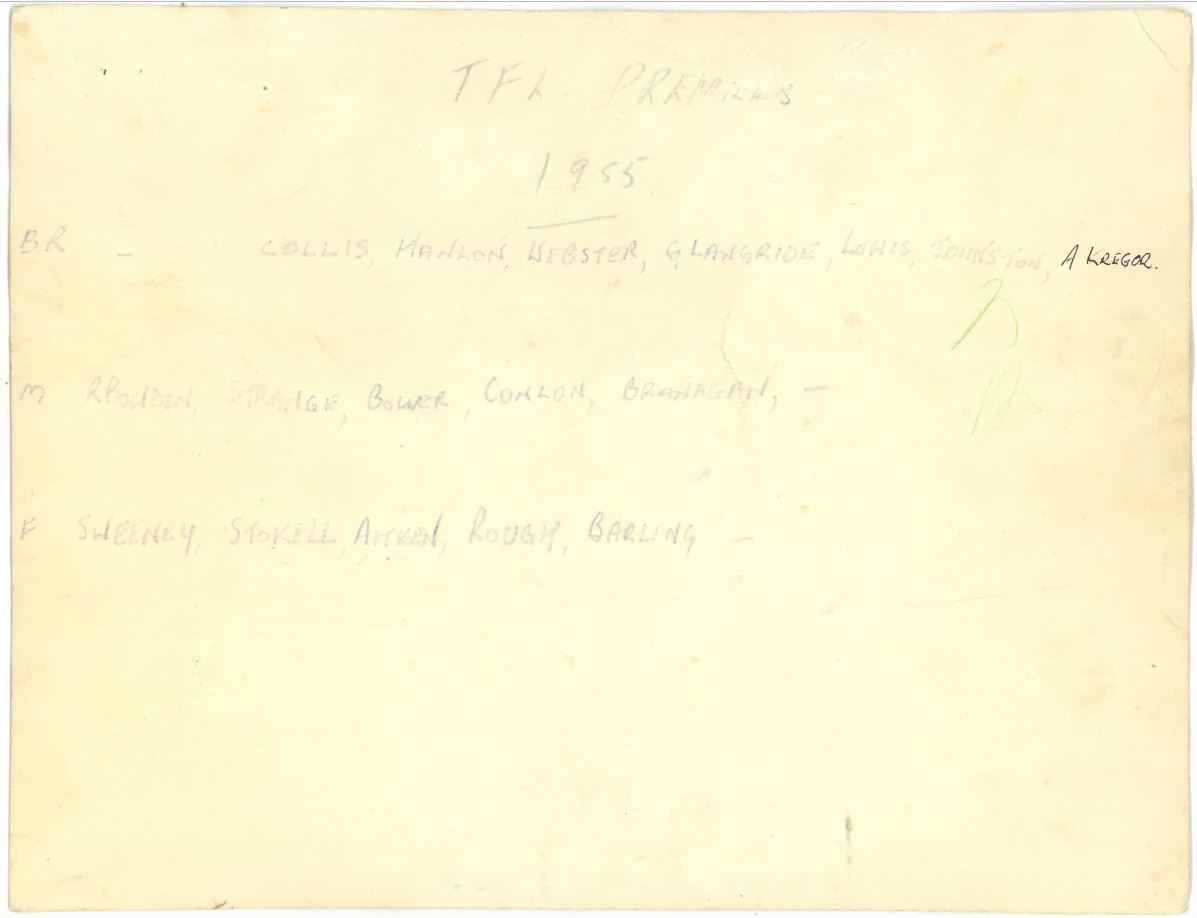 TFL PREMIERS
1955
BR - COLLIS, HANLON, WEBSTER, G LANGRIDE, LEWIS, JOHNSTON, A KREGOR.
M R BOWDEN, STRANGE, BOWER, CONLON, BRANAGAN, -
F SWEENEY, STOKELL, AITKEN, ROUGH, BARLING -